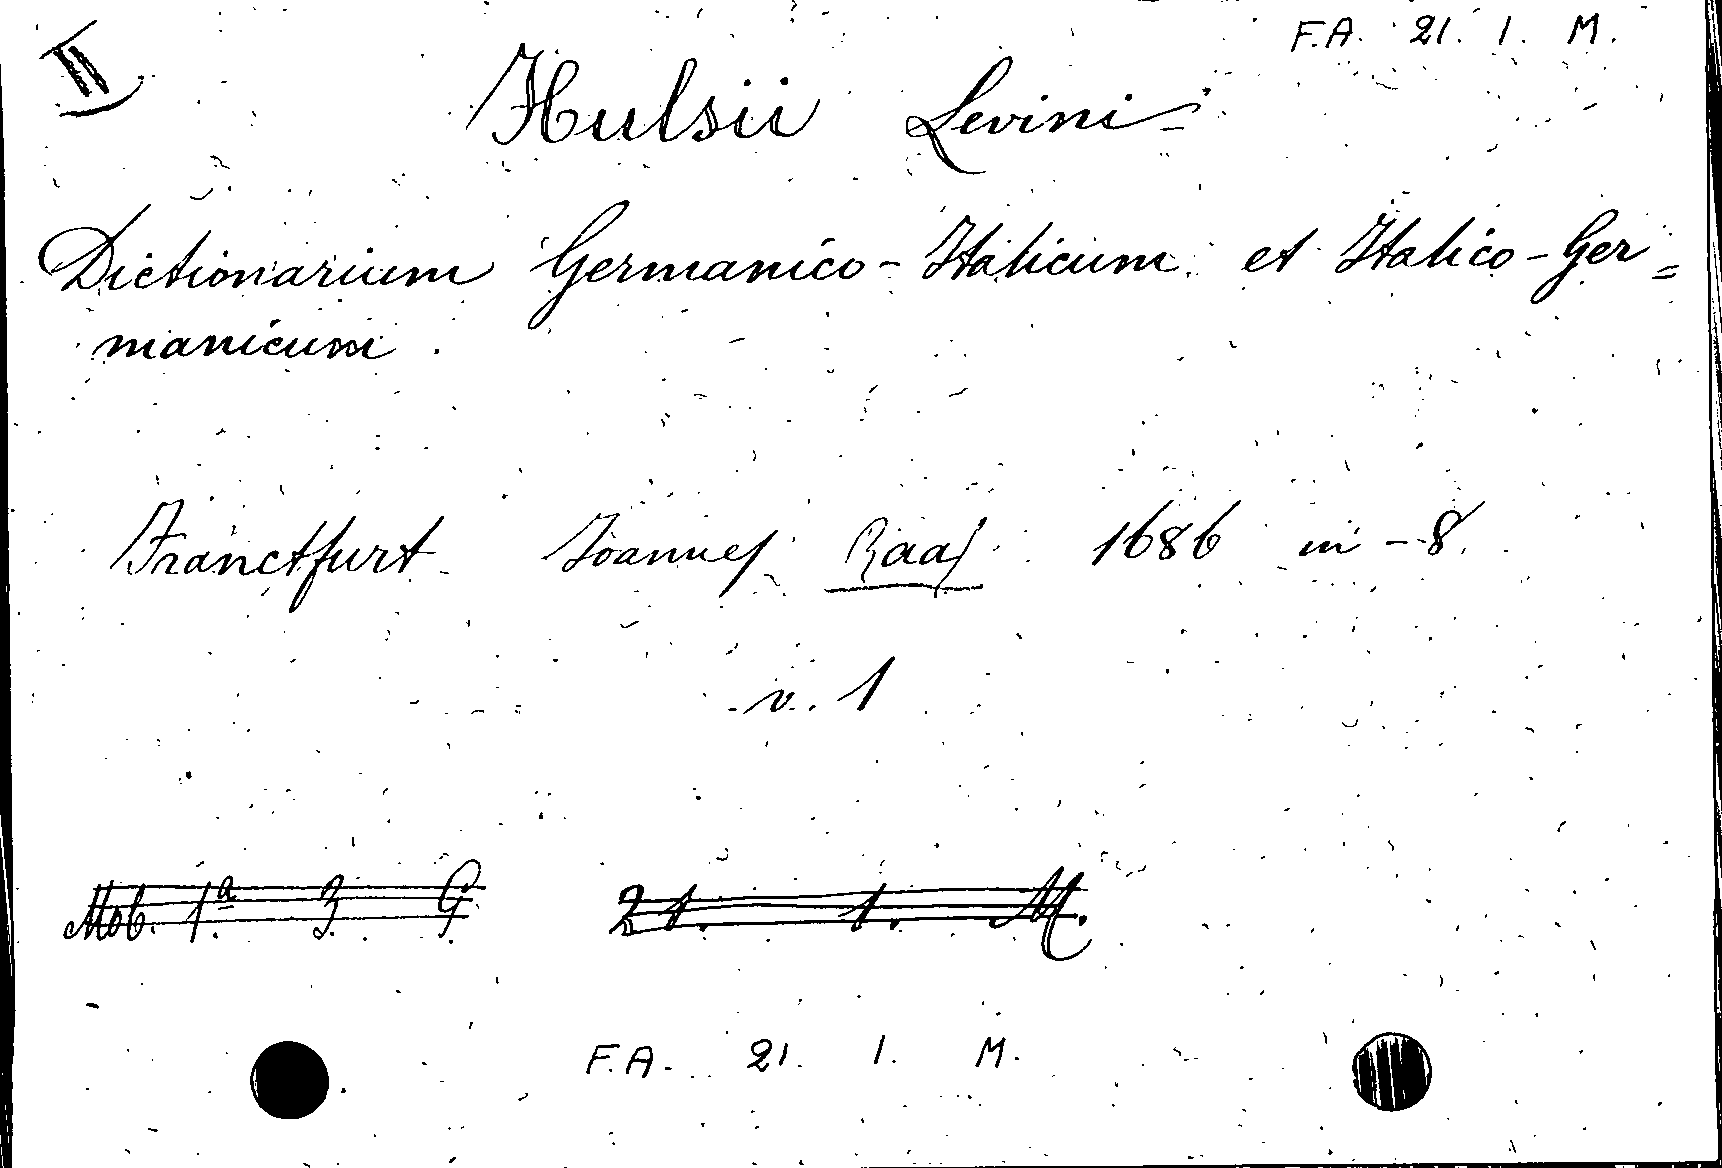 F.A. 21. 1. M.
II
Hulsii Levini
Dictionarium Germanico-Italicum et Italico-Ger=
manicum.
Franctfurt Joannes Raas 1686 in-8.
v. 1
Mob. 1.a 3. G. 21. 1. M.
F.A. 21. 1. M.